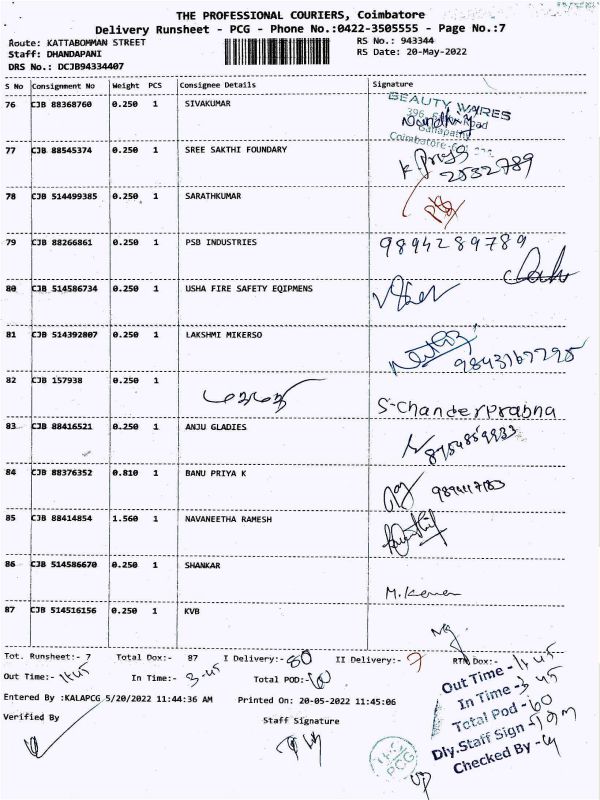 THE PROFESSIONAL COURIERS, Coimbatore
Delivery Runsheet - PCG - Phone No.:0422-3505555 - Page No.:7
Route: KATTABOMMAN STREET RS No.: 943344
Staff: DHANDAPANI RS Date: 20-May-2022
DRS No.: DCJB94334407
S No Consignment No Weight PCS Consignee Details Signature
76 CJB 88368760 0.250 1 SIVAKUMAR
BEAUTY WARES
396, Road
Ganapathy
Coimbatore
77 CJB 88545374 0.250 1 SREE SAKTHI FOUNDARY
2532789
78 CJB 514499385 0.250 1 SARATHKUMAR
79 CJB 88266861 0.250 1 PSB INDUSTRIES 9894289789
80 CJB 514586734 0.250 1 USHA FIRE SAFETY EQIPMENS
81 CJB 514392807 0.250 1 LAKSHMI MIKERSO
82 CJB 157938 0.250 1 S-Chanderprabha
83 CJB 88416521 0.250 1 ANJU GLADIES
84 CJB 88376352 0.810 1 BANU PRIYA K
85 CJB 88414854 1.560 1 NAVANEETHA RAMESH
86 CJB 514586670 0.250 1 SHANKAR
87 CJB 514516156 0.250 1 KVB
Tot. Runsheet:- 7 Total Dox:- 87 I Delivery:- 80 II Delivery:- 7 RTN Dox:-
Out Time:- In Time:- 3-45 Total POD:-
Entered By :KALAPCG 5/20/2022 11:44:36 AM Printed On: 20-05-2022 11:45:06
Verified By Staff Signature
Out Time -
In Time - 3 45
Total Pod - 60
Dly.Staff Sign -
Checked By -
PCG